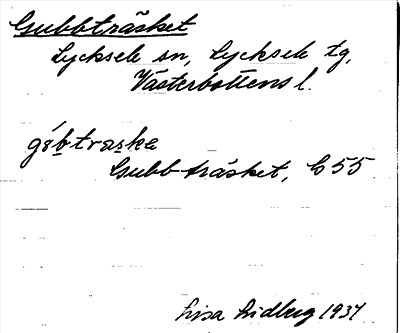 Gubbträsket
Lycksele sn, Lycksele tg,
Västerbottens l.
Gubb-träsket, G 55
Lisa Lidberg 1937